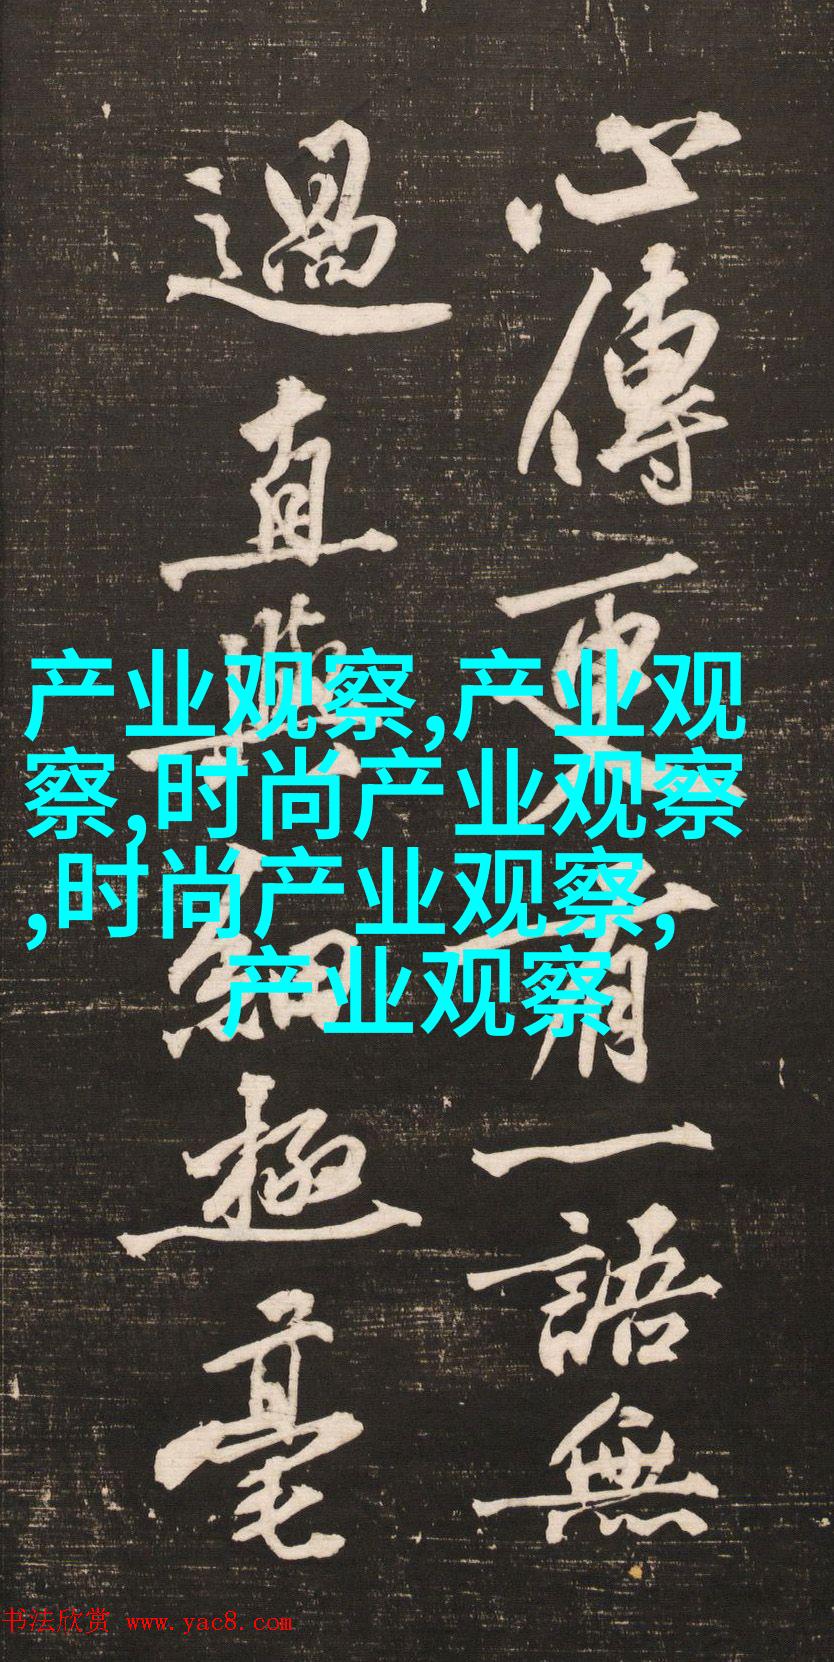 心傳更有一語無
過直與細極毫
产业观察,产业观
察,时尚产业观察
,时尚产业观察,
产业观察
书法欣赏 www.yac8.com